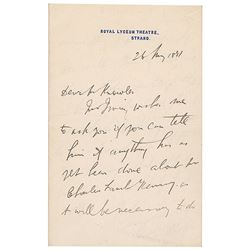 ROYAL LYCEUM THEATRE,
STRAND.
26 May 1881
Dear Mr Knowles
Mr Irving wishes me
to ask you if you can tell
him if anything has as
yet been done about the
Charles Lamb
it will be necessary to do